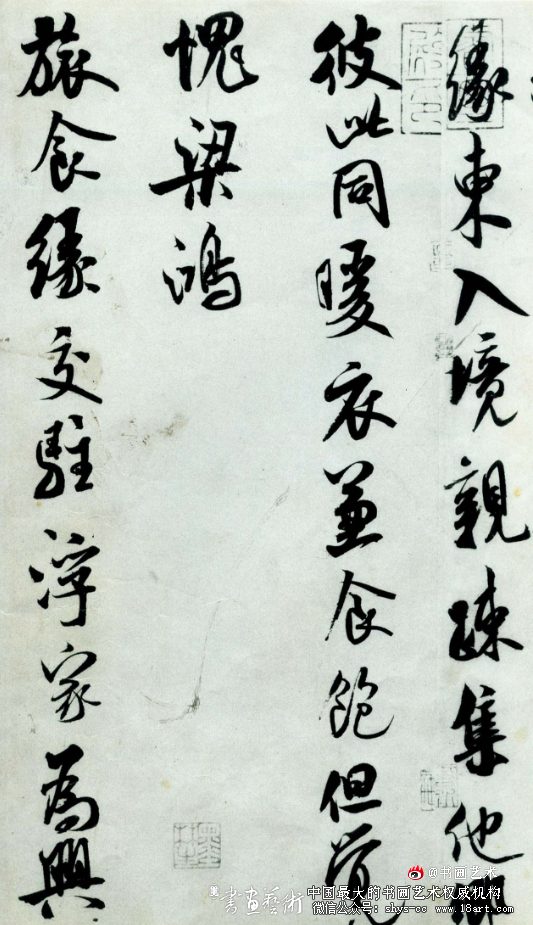 緣東入境親疎集他
彼此同暖衣兼食飽但覺
愧梁鴻
旅食緣交駐浮家為興
@书画艺术
書畫藝術
中国最大的书画艺术权威机构
微信公众号: shys-cc www.18art.com